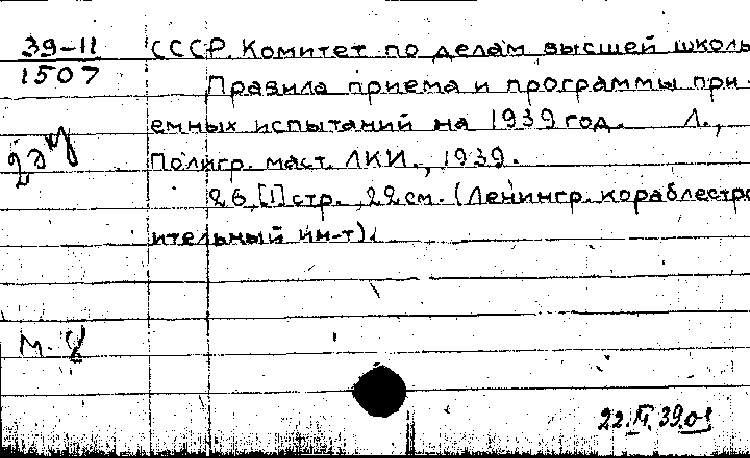 39-11
1507
СССР. Комитет по делам высшей школы
Правила приема и программы при-
емных испытаний на 1939 год. Л.,
Полигр. маст. ЛКИ., 1939.
26,[1] стр., 22 см. (Ленингр. кораблестро
ительный ин-т).
М.